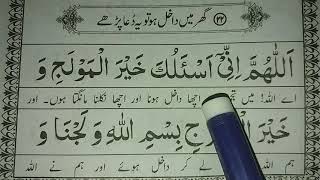 (۲۲) گھر میں داخل ہو تو یہ دعا پڑھے
اَللّٰهُمَّ اِنِّیْۤ اَسْئَلُكَ خَیْرَ الْمَوْلَجِ وَ
اے اللہ! میں اچھا داخل ہونا اور اچھا نکلنا مانگتا ہوں۔ اور
خَیْرَ بِسْمِ اللهِ وَلَجْنَا وَ
ہم اللہ لے کر داخل ہوئے اور ہم نے اللہ